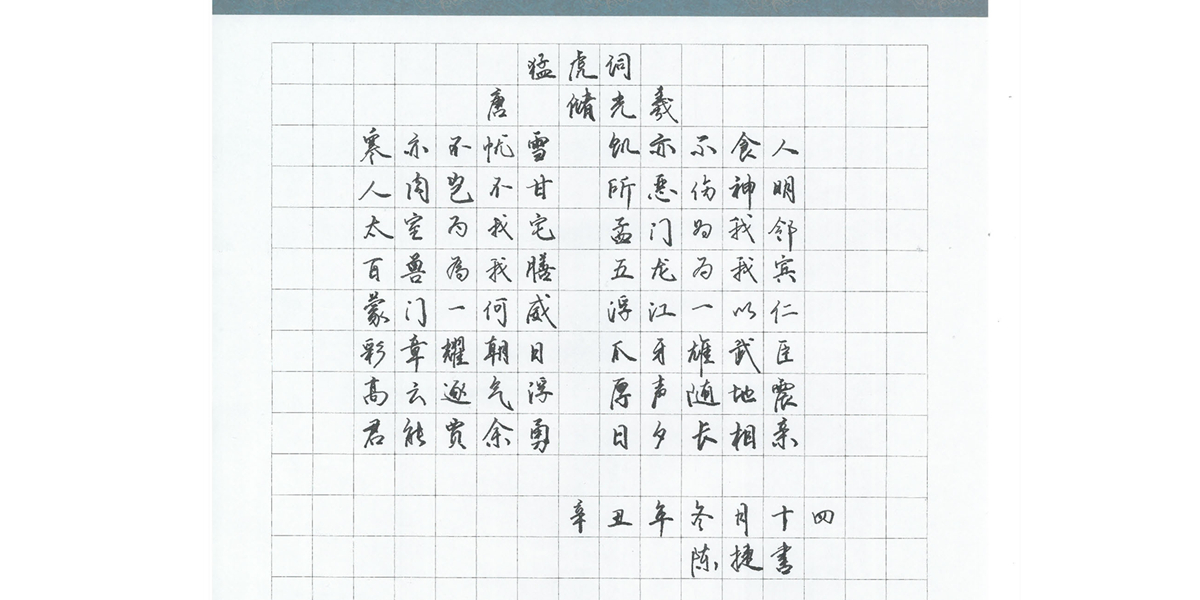 猛虎词
唐 储光羲
寒亦不忧雪 饥亦不食人
人肉岂不甘 所恶伤神明
太室为我宅 孟门为我邻
百兽为我膳 五龙为我宾
蒙门一何威 浮江一以仁
彩章耀朝日 爪牙雄武臣
高云逐气浮 厚声随地震
君能贾余勇 日夕长相亲
辛丑年冬月十四
陈捷书